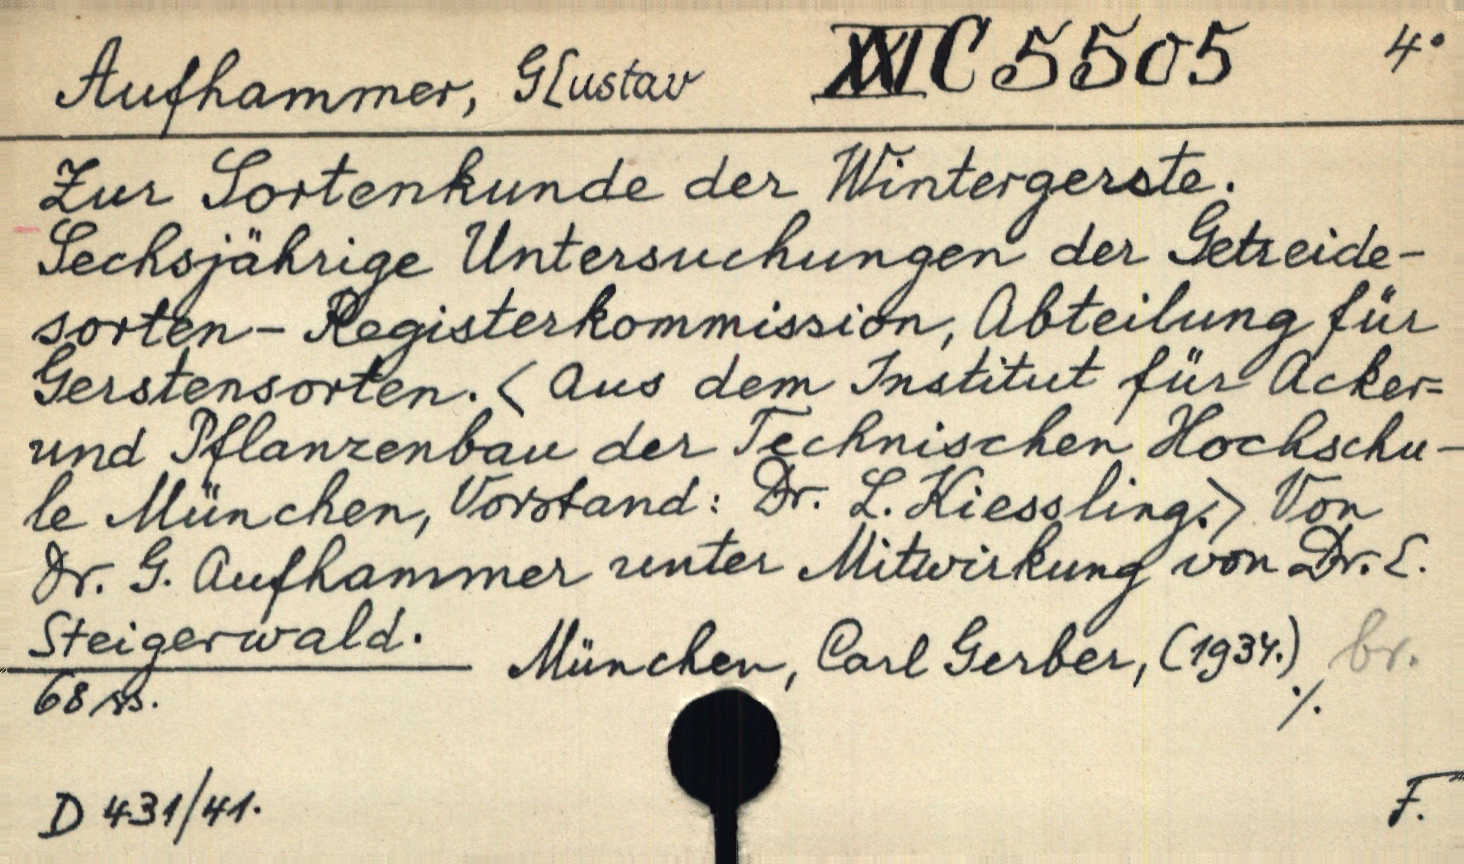 Aufhammer, G[ustav XXI C 5505 4°
Zur Sortenkunde der Wintergerste.
Sechsjährige Untersuchungen der Getreide-
sorten-Registerkommission, Abteilung für
Gerstensorten. < Aus dem Institut für Acker=
und Pflanzenbau der Technischen Hochschu-
le München, Vorstand: Dr. L. Kiessling.> Von
Dr. G. Aufhammer unter Mitwirkung von Dr. L.
Steigerwald.
München, Carl Gerber, (1934.) br.
68 ss. ./.
D 431/41. F.